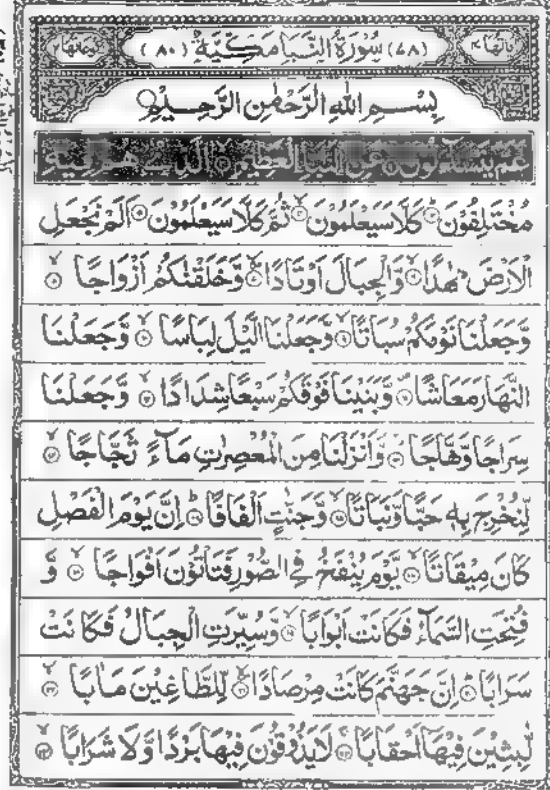 اٰیاتُهَا ٤٠ (٧٨) سُوْرَةُ النَّبَإِ مَكِّيَّةٌ (٨٠) رُكُوْعَاتُهَا ٢
بِسْمِ اللهِ الرَّحْمٰنِ الرَّحِيْمِ
عَمَّ يَتَسَآءَلُوْنَ ۝١ عَنِ النَّبَاِ الْعَظِيْمِ ۝٢ الَّذِيْ هُمْ فِيْهِ
مُخْتَلِفُوْنَ ۝٣ كَلَّا سَيَعْلَمُوْنَ ۝٤ ثُمَّ كَلَّا سَيَعْلَمُوْنَ ۝٥ اَلَمْ نَجْعَلِ
الْاَرْضَ مِهٰدًا ۝٦ وَّالْجِبَالَ اَوْتَادًا ۝٧ وَّخَلَقْنٰكُمْ اَزْوَاجًا ۝٨
وَّجَعَلْنَا نَوْمَكُمْ سُبَاتًا ۝٩ وَّجَعَلْنَا الَّيْلَ لِبَاسًا ۝١٠ وَّجَعَلْنَا
النَّهَارَ مَعَاشًا ۝١١ وَّبَنَيْنَا فَوْقَكُمْ سَبْعًا شِدَادًا ۝١٢ وَّجَعَلْنَا
سِرَاجًا وَّهَّاجًا ۝١٣ وَّاَنْزَلْنَا مِنَ الْمُعْصِرٰتِ مَآءً ثَجَّاجًا ۝١٤
لِّنُخْرِجَ بِهٖ حَبًّا وَّنَبَاتًا ۝١٥ وَّجَنّٰتٍ اَلْفَافًا ۝١٦ اِنَّ يَوْمَ الْفَصْلِ
كَانَ مِيْقَاتًا ۝١٧ يَّوْمَ يُنْفَخُ فِى الصُّوْرِ فَتَاْتُوْنَ اَفْوَاجًا ۝١٨ وَّ
فُتِحَتِ السَّمَآءُ فَكَانَتْ اَبْوَابًا ۝١٩ وَّسُيِّرَتِ الْجِبَالُ فَكَانَتْ
سَرَابًا ۝٢٠ اِنَّ جَهَنَّمَ كَانَتْ مِرْصَادًا ۝٢١ لِّلطَّاغِيْنَ مَاٰبًا ۝٢٢
لّٰبِثِيْنَ فِيْهَآ اَحْقَابًا ۝٢٣ لَا يَذُوْقُوْنَ فِيْهَا بَرْدًا وَّلَا شَرَابًا ۝٢٤